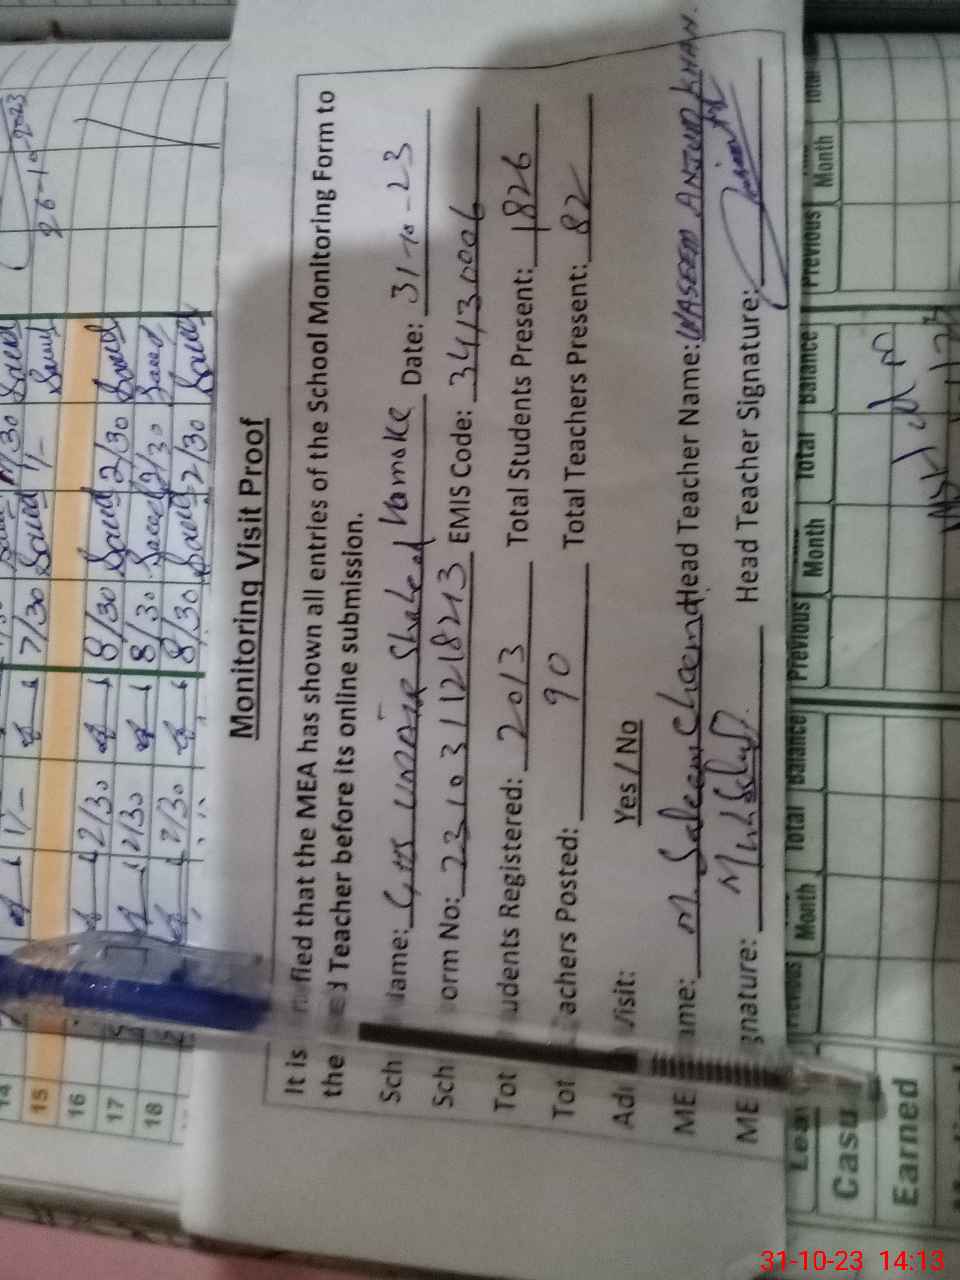 Monitoring Visit Proof
It is fied that the MEA has shown all entries of the School Monitoring Form to
the d Teacher before its online submission.
Sch Name: GHS UMAIR Shaheed Vamoke Date: 31-10-23
Sch orm No: 2310311218213 EMIS Code: 34130006
Tot udents Registered: 2013 Total Students Present: 1826
Tot achers Posted: 90 Total Teachers Present: 82
Ad Visit: Yes / No
ME ame: M. Saleem Cheema Head Teacher Name: WASEEM ANJUM KHAN.
ME gnature: Head Teacher Signature:
14
15
16
17
18
1/-
7/30 Saeed 1/- Saeed
12/30 8/30 Saeed 12/30 Saeed
12/30 8/30 Saeed 12/30 Saeed
12/30 8/30 Saeed 12/30 Saeed
26-10-2023
Lea Previous Month Total Balance Previous Month Total Balance Previous Month Total
Casu
Earned
31-10-23 14:13